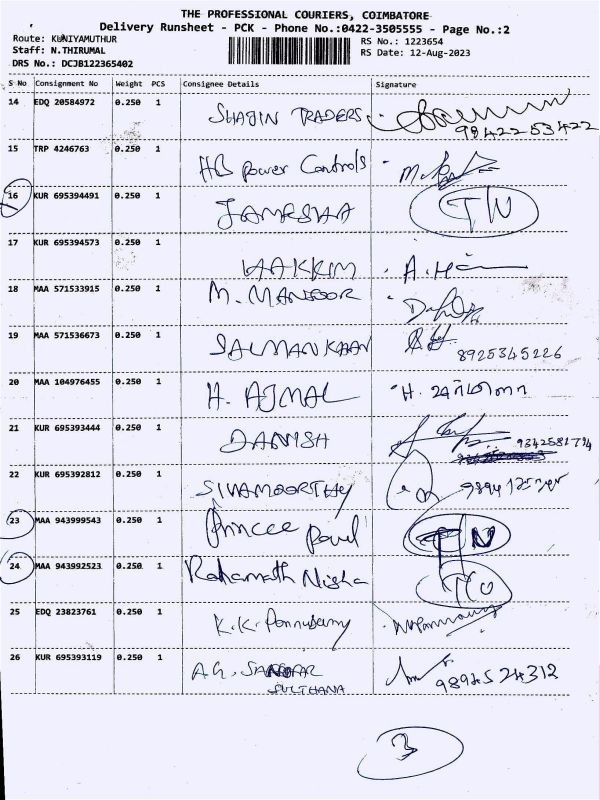 THE PROFESSIONAL COURIERS, COIMBATORE
Delivery Runsheet - PCK - Phone No.:0422-3505555 - Page No.:2
Route: KUNIYAMUTHUR RS No.: 1223654
Staff: N.THIRUMAL RS Date: 12-Aug-2023
DRS No.: DCJB122365402
S No Consignment No Weight PCS Consignee Details Signature
14 EDQ 20584972 0.250 1 SHAJIN TRADERS
9842253422
15 TRP 4246763 0.250 1 HB power Controls
16 KUR 695394491 0.250 1 JAMESHA
17 KUR 695394573 0.250 1 HAKKIM A.
18 MAA 571533915 0.250 1 M. MANSOOR
19 MAA 571536673 0.250 1 SALMAN KHAN
8925345226
20 MAA 104976455 0.250 1 H. AJMAL H.
21 KUR 695393444 0.250 1 DANISH 9342581794
22 KUR 695392812 0.250 1 SIVAMOORTHY
23 MAA 943999543 0.250 1 Princee Paul
24 MAA 943992523 0.250 1 Rahamath Nisha
25 EDQ 23823761 0.250 1 K.K. Ponnusamy
26 KUR 695393119 0.250 1 A.G.
SULTHANA 9894524312
3